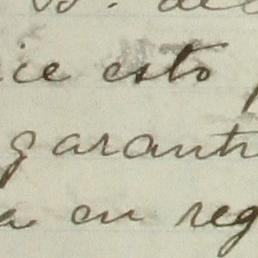 ice esto
garanti
a en reg